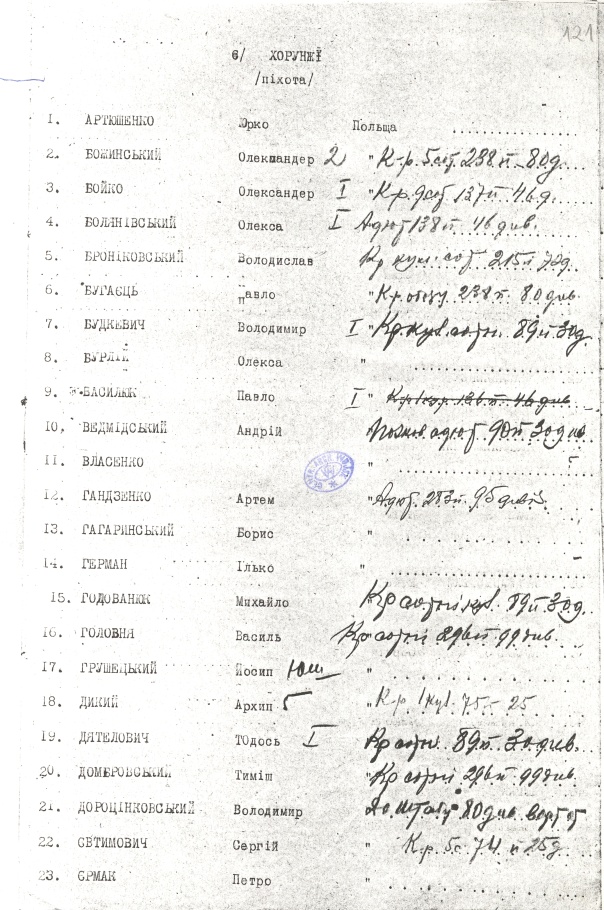 121
6/ ХОРУНЖІ
/піхота/
1. АРТЮШЕНКО Юрко Польща
2. БОЖИНСЬКИЙ Олександер 2 " К-р. 5 сот. 238 п. 80 д.
3. БОЙКО Олександер І " К р. сот. 137 п 46 д.
4. БОЛЯНІВСЬКИЙ Олекса І Адют 138 п. 46 див.
5. БРОНІКОВСЬКИЙ Володислав Кр кул. сот 215 п
6. БУГАЄЦЬ Павло " К-р. обозу 238 п. 80 див.
7. БУДКЕВИЧ Володимир І " Кр. кул. сотн. 89 п 30 д.
8. БУРЛІЙ Олекса "
9. ВАСИЛЮК Павло І " 136 п. 46 див
10, ВЕДМІДСЬКИЙ Андрій адют 90 п 30 див
11. ВЛАСЕНКО "
12. ГАНДЗЕНКО Артем " Адют. 283 п. 95 дивіз.
13. ГАГАРИНСЬКИЙ Борис "
14. ГЕРМАН Ілько "
15. ГОДОВАНЮК Михайло Кр сотні кул. 89 п 30 д.
16. ГОЛОВНЯ Василь Кр сотні 296 п 99 див.
17. ГРУШЕЦЬКИЙ Йосип Юш "
18. ДИКИЙ Архип " К р. 1 кул. 75 - 25
19. ДЯТЕЛОВИЧ ТОдось І Кр сотні. 89 п. 30 див.
20. ДОМБРОВСЬКИЙ Тиміш " Кр сотні 296 п 99 див.
21. ДОРОЦІНКОВСЬКИЙ Володимир До штабу 80 див.
22. ЄВТИМОВИЧ Сергій " К. р. 5 с. 74 п 25 д
23. ЄРМАК Петро "